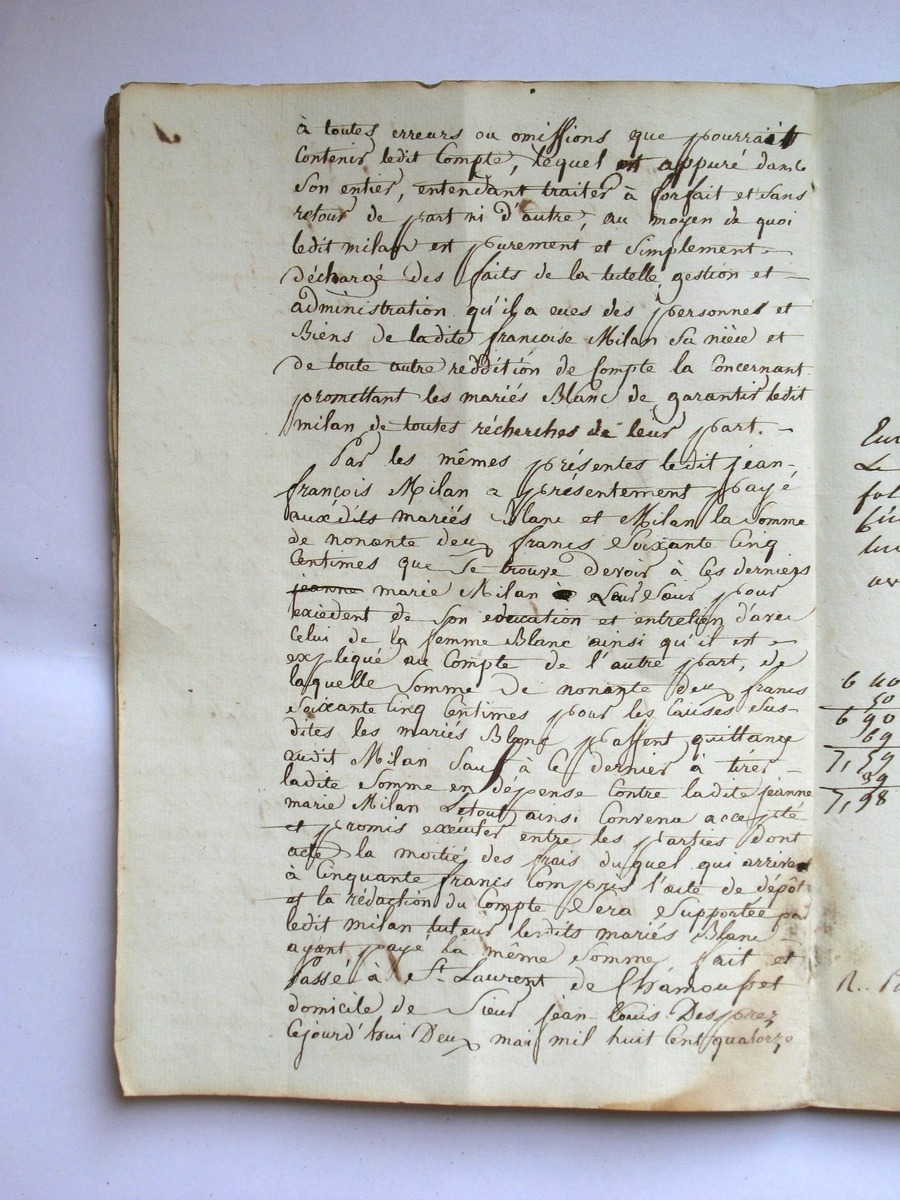 à toutes erreurs ou omissions que pourrait
Contenir ledit Compte, lequel est appuré dans
Son entier, entendant traiter à forfait et Sans
retour de part ni d'autre, au moyen de quoi
ledit milan est purement et Simplement
déchargé des faits de la tutelle, gestion et
administration qu'il a eues des personnes et
Biens de ladite françoise Milan Sa nièce et
de toute autre reddition de Compte la Concernant
promettant les mariés Blanc de garantir ledit
milan de toutes récherches de leur part.
Par les mêmes présentes ledit jean
françois Milan a présentement payé
auxdits mariés Blanc et Milan la Somme
de nonante deux francs Soixante Cinq
Centimes que Se trouve devoir à Ces derniers
jeanne marie Milan Leur Sœur pour
exiédent de Son education et entretien d'avec
Celui de la femme Blanc ainsi qu'il est
expliqué au Compte de l'autre part, de
laquelle Somme de nonante deux francs
Soixante Cinq Centimes pour les Causes Sus-
dites les mariés Blanc passent quittance
audit Milan Sauf à Ce dernier à tirer
ladite Somme en dépense Contre ladite jeanne
marie Milan Letout ainsi Convenu accepté
et promis exécuter entre les parties dont
acte la moitié des frais duquel qui arrivent
à Cinquante francs Compris l'acte de dépôt
et la rédaction du Compte Sera Supportée par
ledit milan tuteur lesdits mariés Blanc
ayant payé la même Somme fait et
Passé à St. Laurent de Chamousset
domicile de Sieur jean Louis Desprez
Cejourd'hui Deux mai mil huit Cent quatorze
6 90
69
7,59
39
7,98